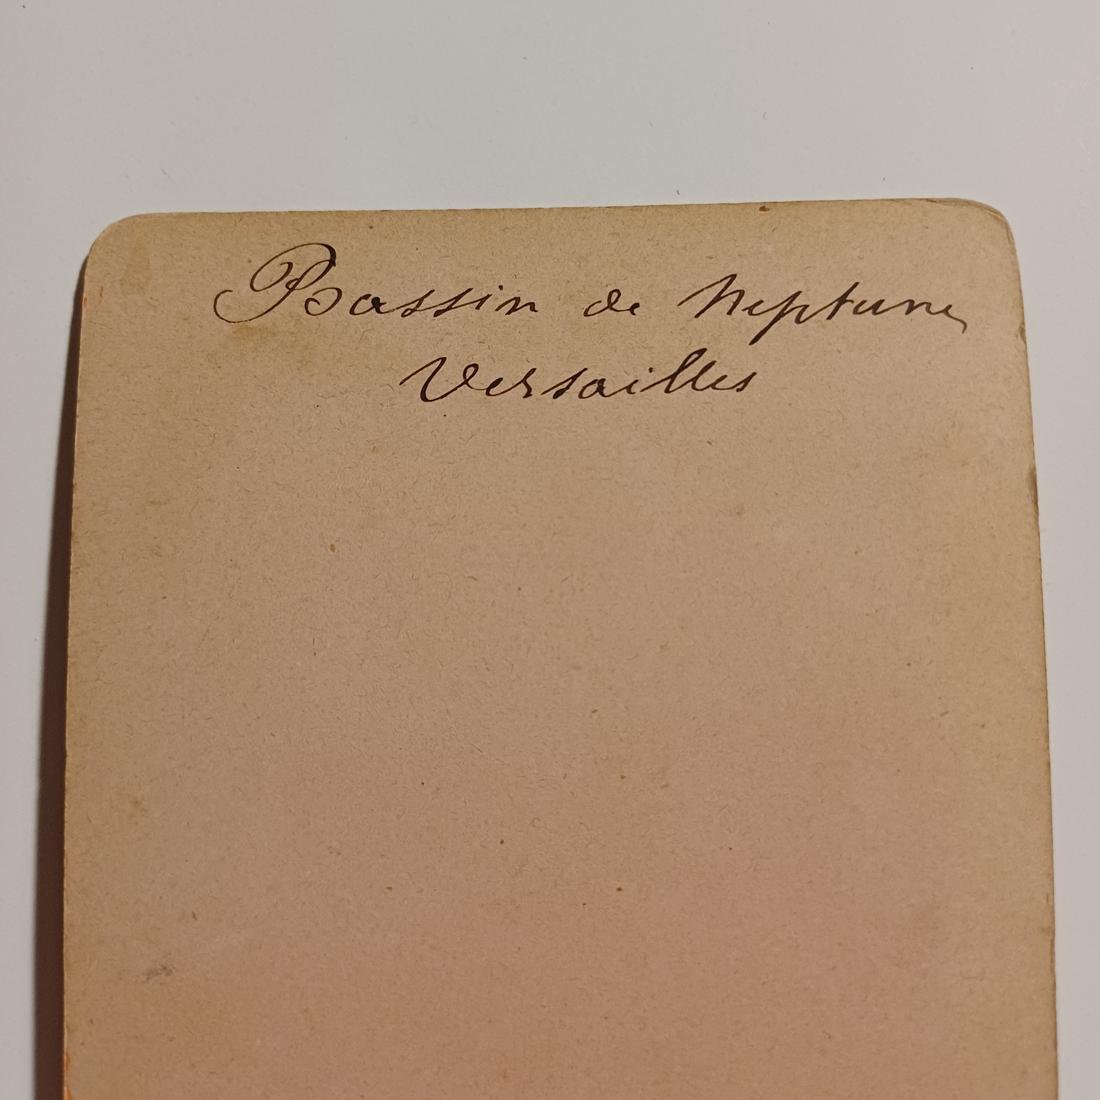 Bassin de Neptune,
Versailles